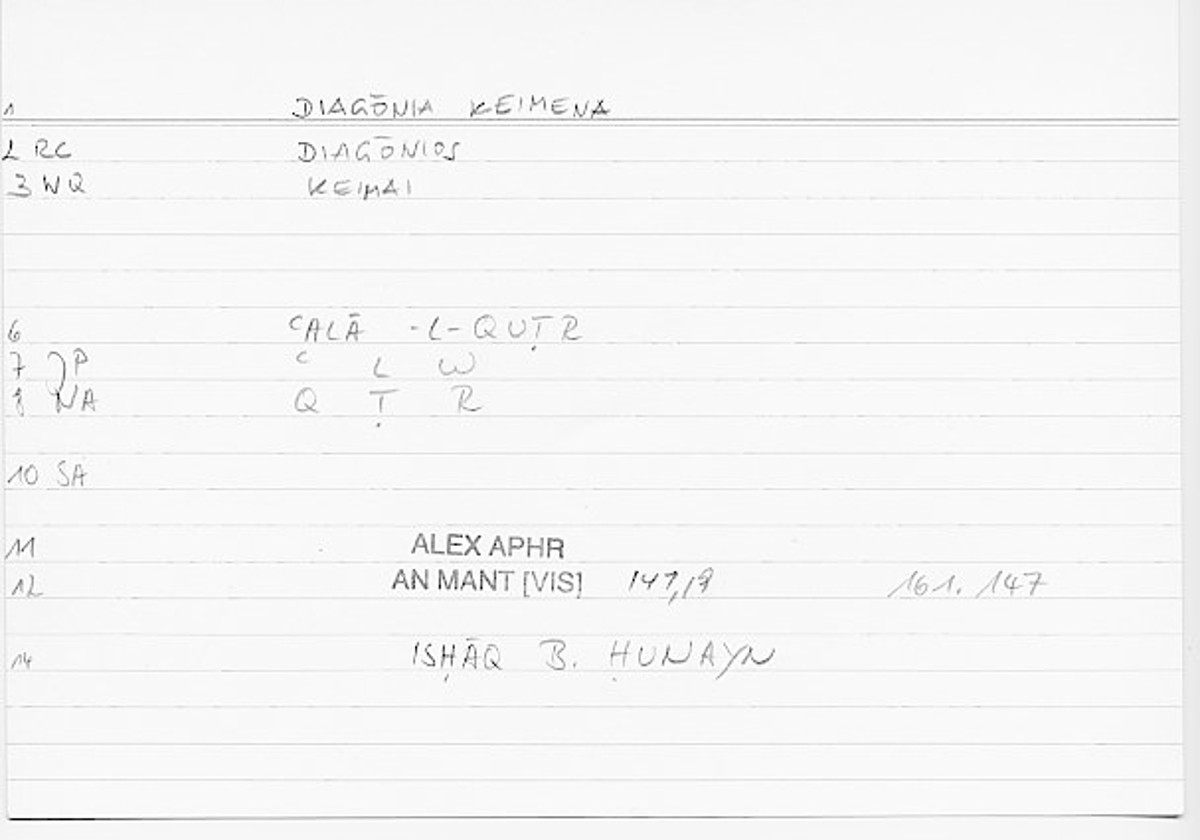 1 DIAGŌNIA KEIMENA
2 RC DIAGŌNIOS
3 WQ KEIMAI
6 ʿALĀ -L-QUṬR
7 JP ʿ L W
8 NA Q Ṭ R
10 SA
11 ALEX APHR
12 AN MANT [VIS] 147,19 161.147
14 ISḤĀQ B. ḤUNAYN